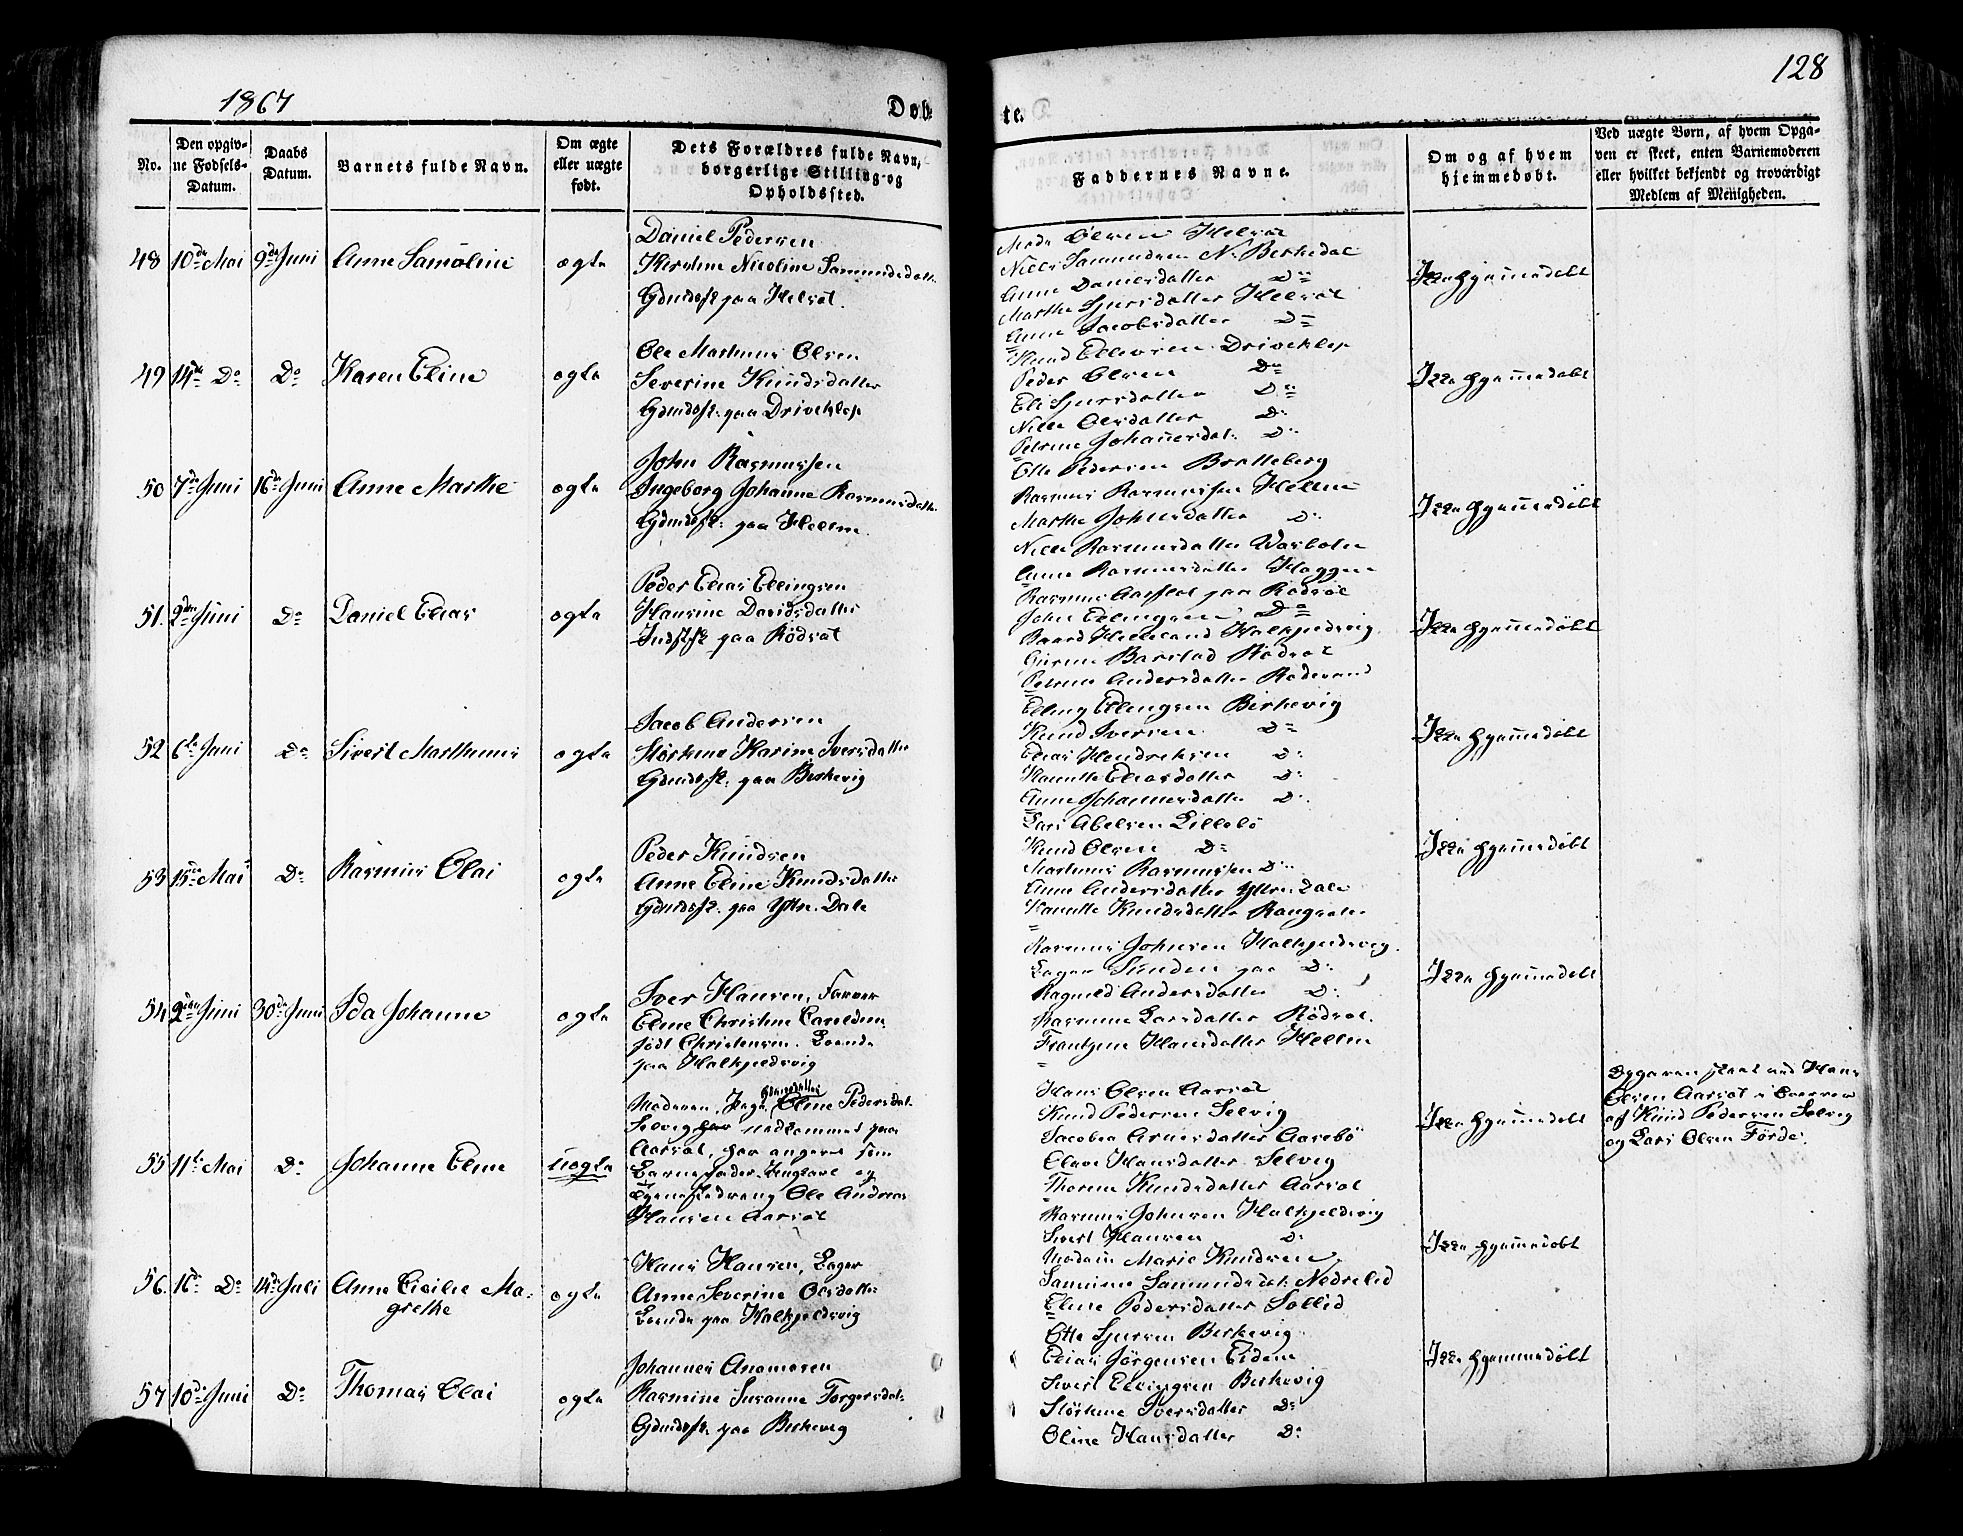 1867
Døb
te.
128
No.
Den opgiv-
ne Fødsels-
Datum.
Daabs
Datum.
Barnets fulde Navn.
Om ægte
eller uægte
født.
Dets Forældres fulde Navn,
borgerlige Stilling og
Opholdssted.
Faddernes Navne.
Om og af hvem
hjemmedøbt.
Ved uægte Børn, af hvem Opga-
ven er skeet, enten Barnemoderen
eller hvilket bekjendt og troværdigt
Medlem af Menigheden.
48 10de Mai 9de Juni Anne Samoline ægte
Daniel Pedersen
Kirstine Nicoline Samundsdatter
Gdmdsf. paa Helsøt.
Mads Olsen Helsøt
Niels Samundsen N. Birkedal
Anne Danielsdatter Do
Marthe Sjursdatter Helsøt
Anne Jacobsdatter Do
Ikke hjemmedøbt
49 14de Do Do Karen Eline ægte
Ole Martinus Olsen
Severine Knudsdatter
Gdmdsf. paa Driveklep
Knud Ellevsen Driveklep
Peder Olsen Do
Eli Sjursdatter Do
Nille Olsdatter Do
Petrine Johannesdat. Do
Ikke hjemmedøbt
50 7de Juni 16de Juni Anne Marthe ægte
John Rasmussen
Ingeborg Johanne Rasmusdatter
Gdmdsf. paa Hellen.
Otte Pedersen Bratteberg
Rasmus Rasmussen Hellen
Marthe Johnsdatter Do
Nille Rasmusdatter
Anne Rasmusdatter
Ikke hjemmedøbt
51. 2den Juni Do Daniel Elias ægte
Peder Elias Ellingsen
Hansine Davidsdatter
Indsf. paa Rødsøt
Rasmus Aarsløt paa Rødsøt
John Ellingsen Do
Baard Halkjelsvig
Barstad Rødsøt
Petrine Andersdatter
Ikke hjemmedøbt
52 6te Juni Do Sivert Marthinus ægte
Jacob Andersen
Størkine Karine Iversdatter
Gdmdsf. paa Birkevig
Elling Ellingsen Birkevig
Knud Iversen Do
Elias Hendriksen Do
Hanelle Eliasdatter Do
Anne Johannesdatter Do
Ikke hjemmedøbt
53 15de Mai Do Rasmus Olai ægte
Peder Knudsen
Anne Eline Knudsdatter
Gdmdsf. paa Yttre Dale
Lars Abelsen Lillebø
Knud Olsen Do
Martinus Rasmussen Do
Anne Andersdatter Yttre Dale
Hanelle Knudsdatter
Ikke hjemmedøbt
54 2den Juni 30de Juni Ida Johanne ægte
Iver Hansen, Farver
Eline Christine
født Christensen. Boende
paa Halkjeldsvig
Rasmus Johnsen Halkjeldsvig.
Lager paa Do
Ragnild Andersdatter Do
Rasmine Larsdatter Rødsøt.
Frantzine Hansdatter Hellen
Ikke hjemmedøbt
55 11te Mai Do Johanne Eline uægte
Moderen, Pige, Eline Pedersdat.
Selvig nedkommet paa
Aarsøt, har angivet som
Barnefader Ungkarl og
Ole Andreas
Hansen Aarsøt
Hans Olsen Aarsøt
Knud Pedersen Selvig
Jacobea Arnesdatter Aarebø
Olave Hansdatter Selvig
Thorine Knudsdatter Aarsøt
Ikke hjemmedøbt
Opgaven skeet ved Hans
Olsen Aarsøt i Overvær
af Knud Pedersen Selvig
og Lars Olsen Førde.
56. 16de Do 14de Juli Anne Cicilie Ma-
grethe ægte
Hans Hansen, Bager
Anne Severine Olsdatter
Boende paa Halkjeldsvig
Rasmus Johnsen Halkjeldsvig
Sivert Hansen Do
Madam Marie Knudsen
Samine Samundsdat. Nedrelid
Eline Pedersdatter Sollid
Ikke hjemmedøbt
57 10de Juni Do Thomas Olai ægte
Johannes
Rasmine Susanne Torgersdat.
Gdmdsf. paa Birkevig
Otte Sjursen Birkevig
Elias Jørgensen Eidem
Sivert Ellingsen Birkevig
Størkine Iversdatter Do
Oline Hansdatter Do
Ikke hjemmedøbt